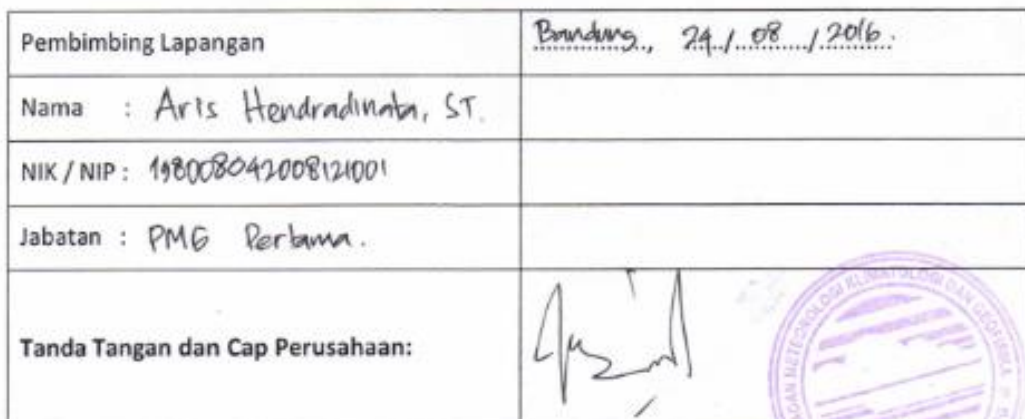 Pembimbing Lapangan
Bandung, 24 / 08 / 2016.
Nama : Aris Hendradinata, ST.
NIK / NIP : 198008042008121001
Jabatan : PMG Pertama.
Tanda Tangan dan Cap Perusahaan:
METEOROLOGI KLIMATOLOGI DAN GEOFISIKA